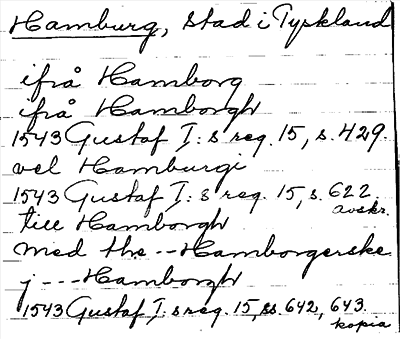 Hamburg, stad i Tyskland
ifrå Hamborg
ifrå Hamborgh
1543 Gustaf I:s reg. 15, s. 429.
vel Hamburgi
1543 Gustaf I:s reg. 15, s. 622.
avskr.
till Hamborgh
med the -- Hamborgerske
j --- Hamborgh
1543 Gustaf I:s reg. 15, ss. 642, 643.
kopia